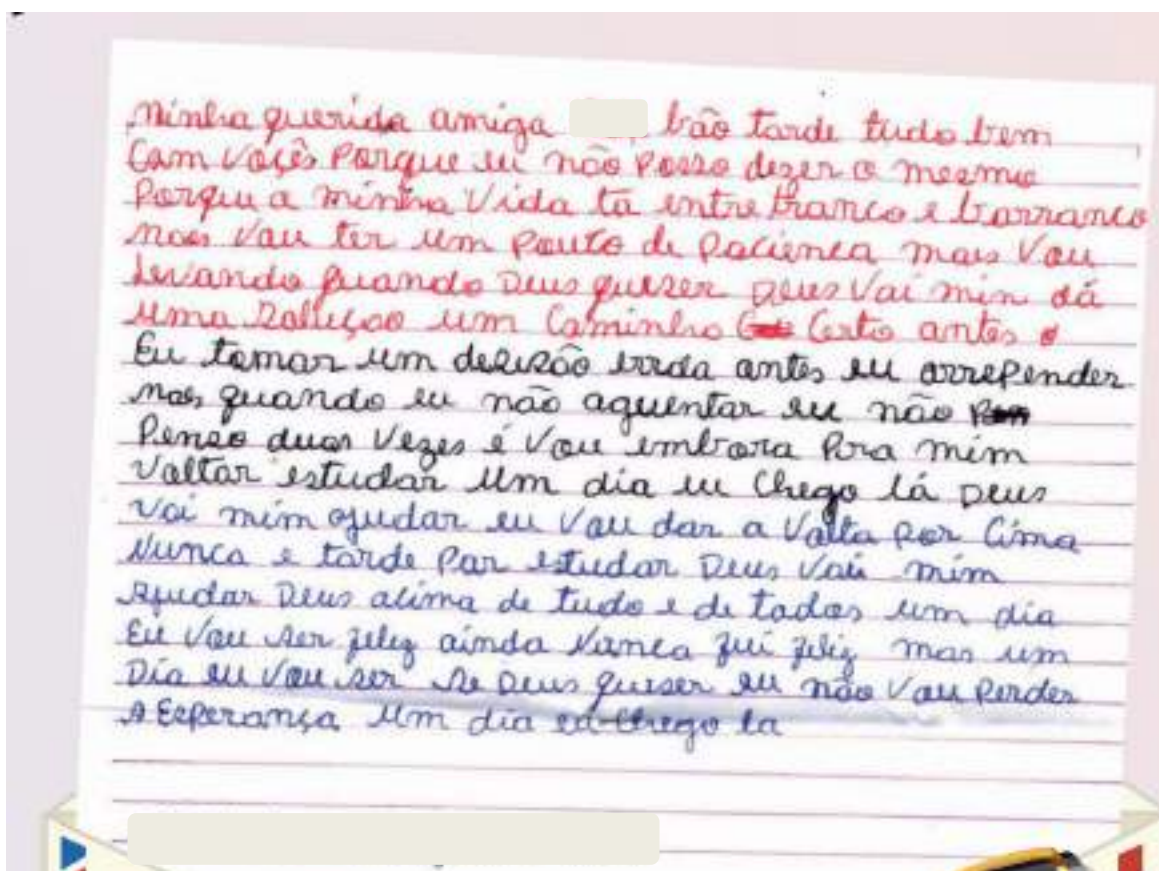 Minha querida amiga bão tarde tudo bem
Com voçês Porque eu não Posso dezer o mesmo
Porqeu a minha Vida ta entre tranco e barranco
mais Vou ter um Pouco de Paciença mais Vou
Levando quando Deus quezer Deus Vai min dá
uma soluçao um Caminho Certo antes
Eu tomar um desizão errda antes eu arrepender
mais quando eu não aguentar eu não
Penso duas Vezes é Vou embora Pra mim
Voltar estudar Um dia eu Chego lá Deus
vai mim ajudar eu Vou dar a Volta Por Cima
Nunca e tarde Par estudar Deus Vai mim
ajudar Deus acima de tudo e de todos um dia
Eu Vou ser feliz ainda Nunca fui feliz mas um
Dia eu Vou ser se Deus quiser eu não Vou Perder
A Esperança Um dia eu Chego la